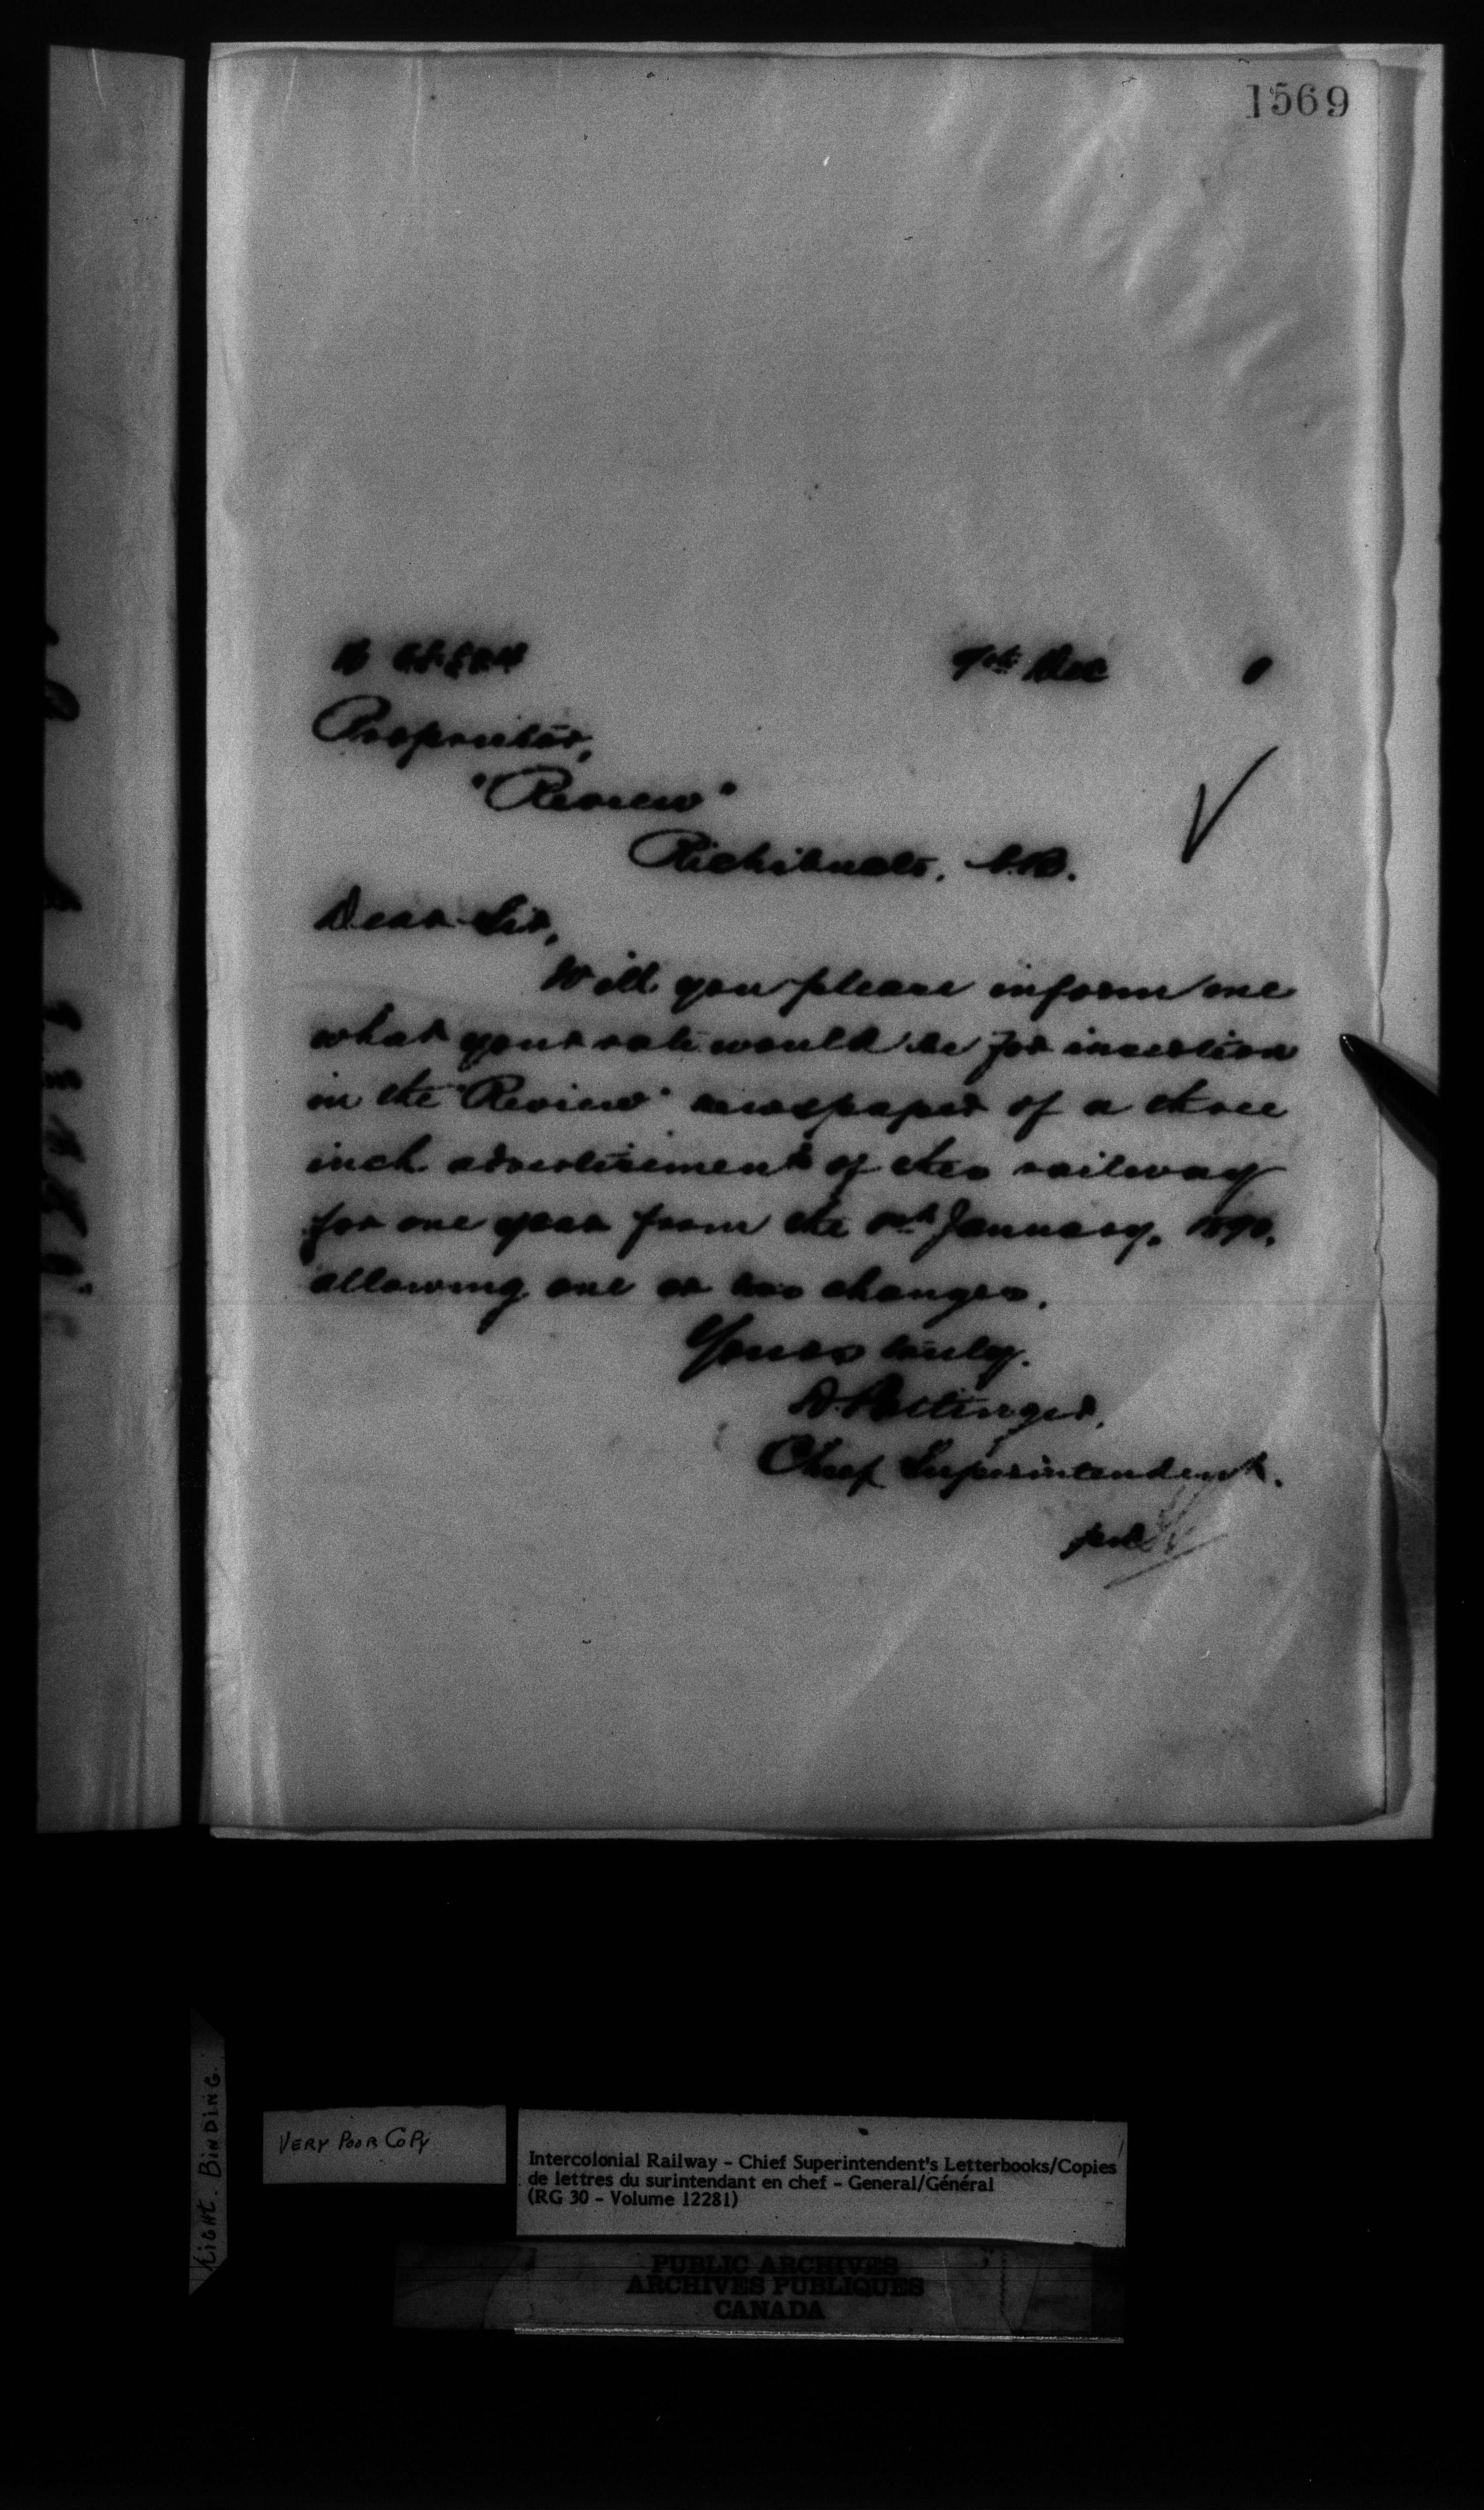 1569
9th Dec
Proprietor,
"Review"
Richibucto, N.B.
Dear Sir,
Will you please inform me
what your rate would be for insertion
in the "Review" newspaper of a three
inch advertisement of this railway
for one year from the 1st January, 1890,
allowing one or two changes.
Yours truly,
D. Pottinger,
Chief Superintendent.
per
TIGHT BINDING.
VERY POOR COPY
Intercolonial Railway - Chief Superintendent's Letterbooks/Copies
de lettres du surintendant en chef - General/Général
(RG 30 - Volume 12281)
PUBLIC ARCHIVES
ARCHIVES PUBLIQUES
CANADA